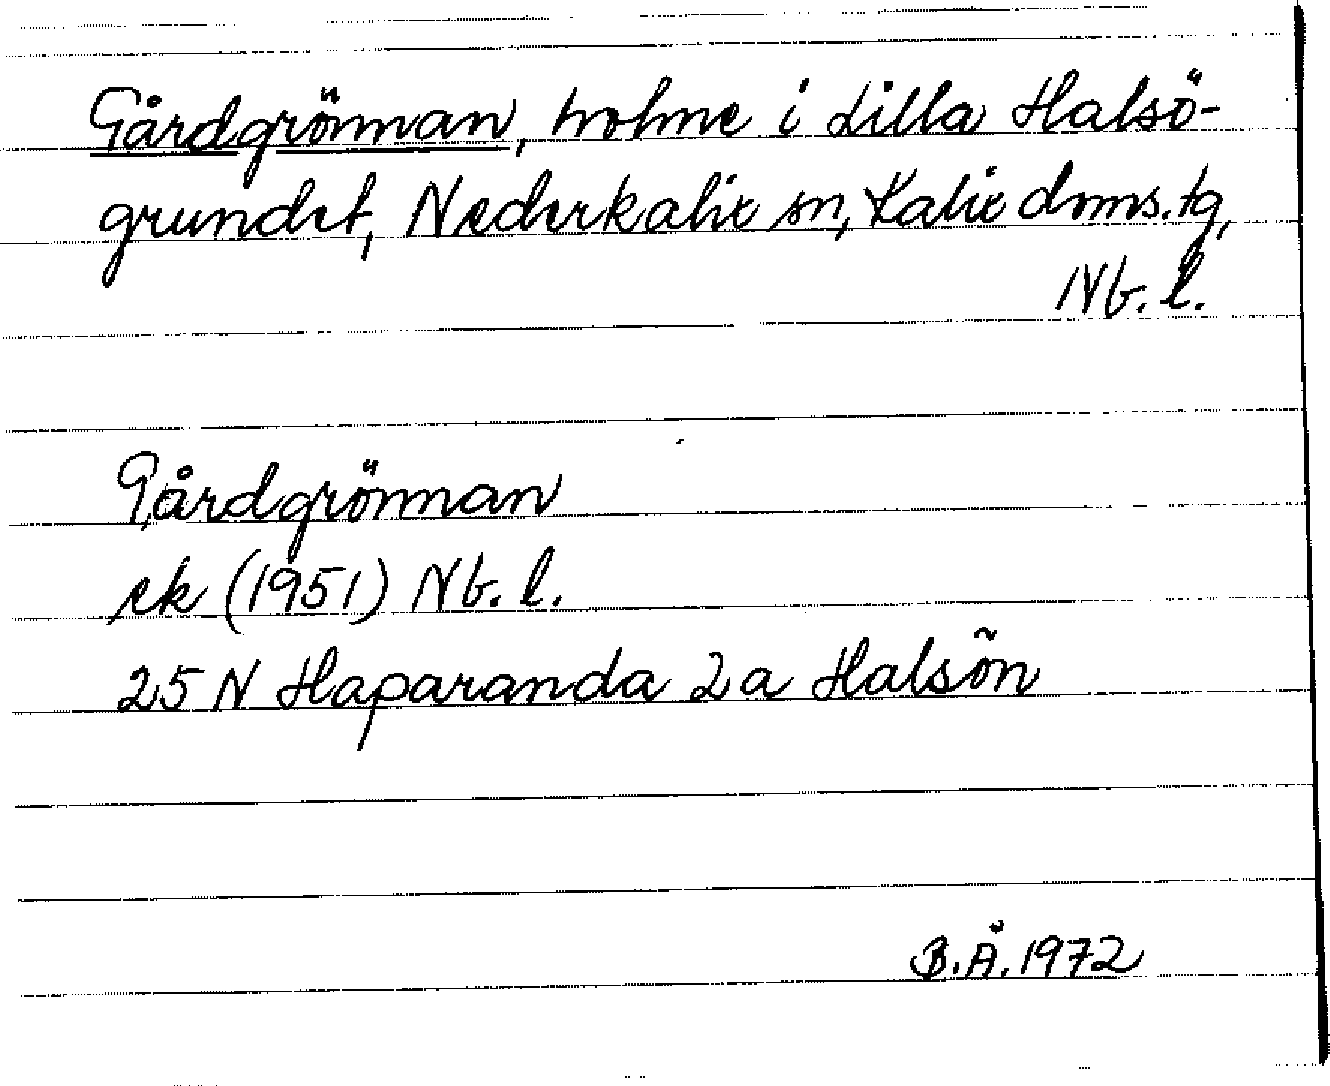 Gårdgrönnan, holme i Lilla Halsö-
grundet, Nederkalix sn, Kalix doms.tg,
Nb. l.
Gårdgrönnan
ek (1951) Nb. l.
25 N Haparanda 2 a Halsön
B.Å. 1972